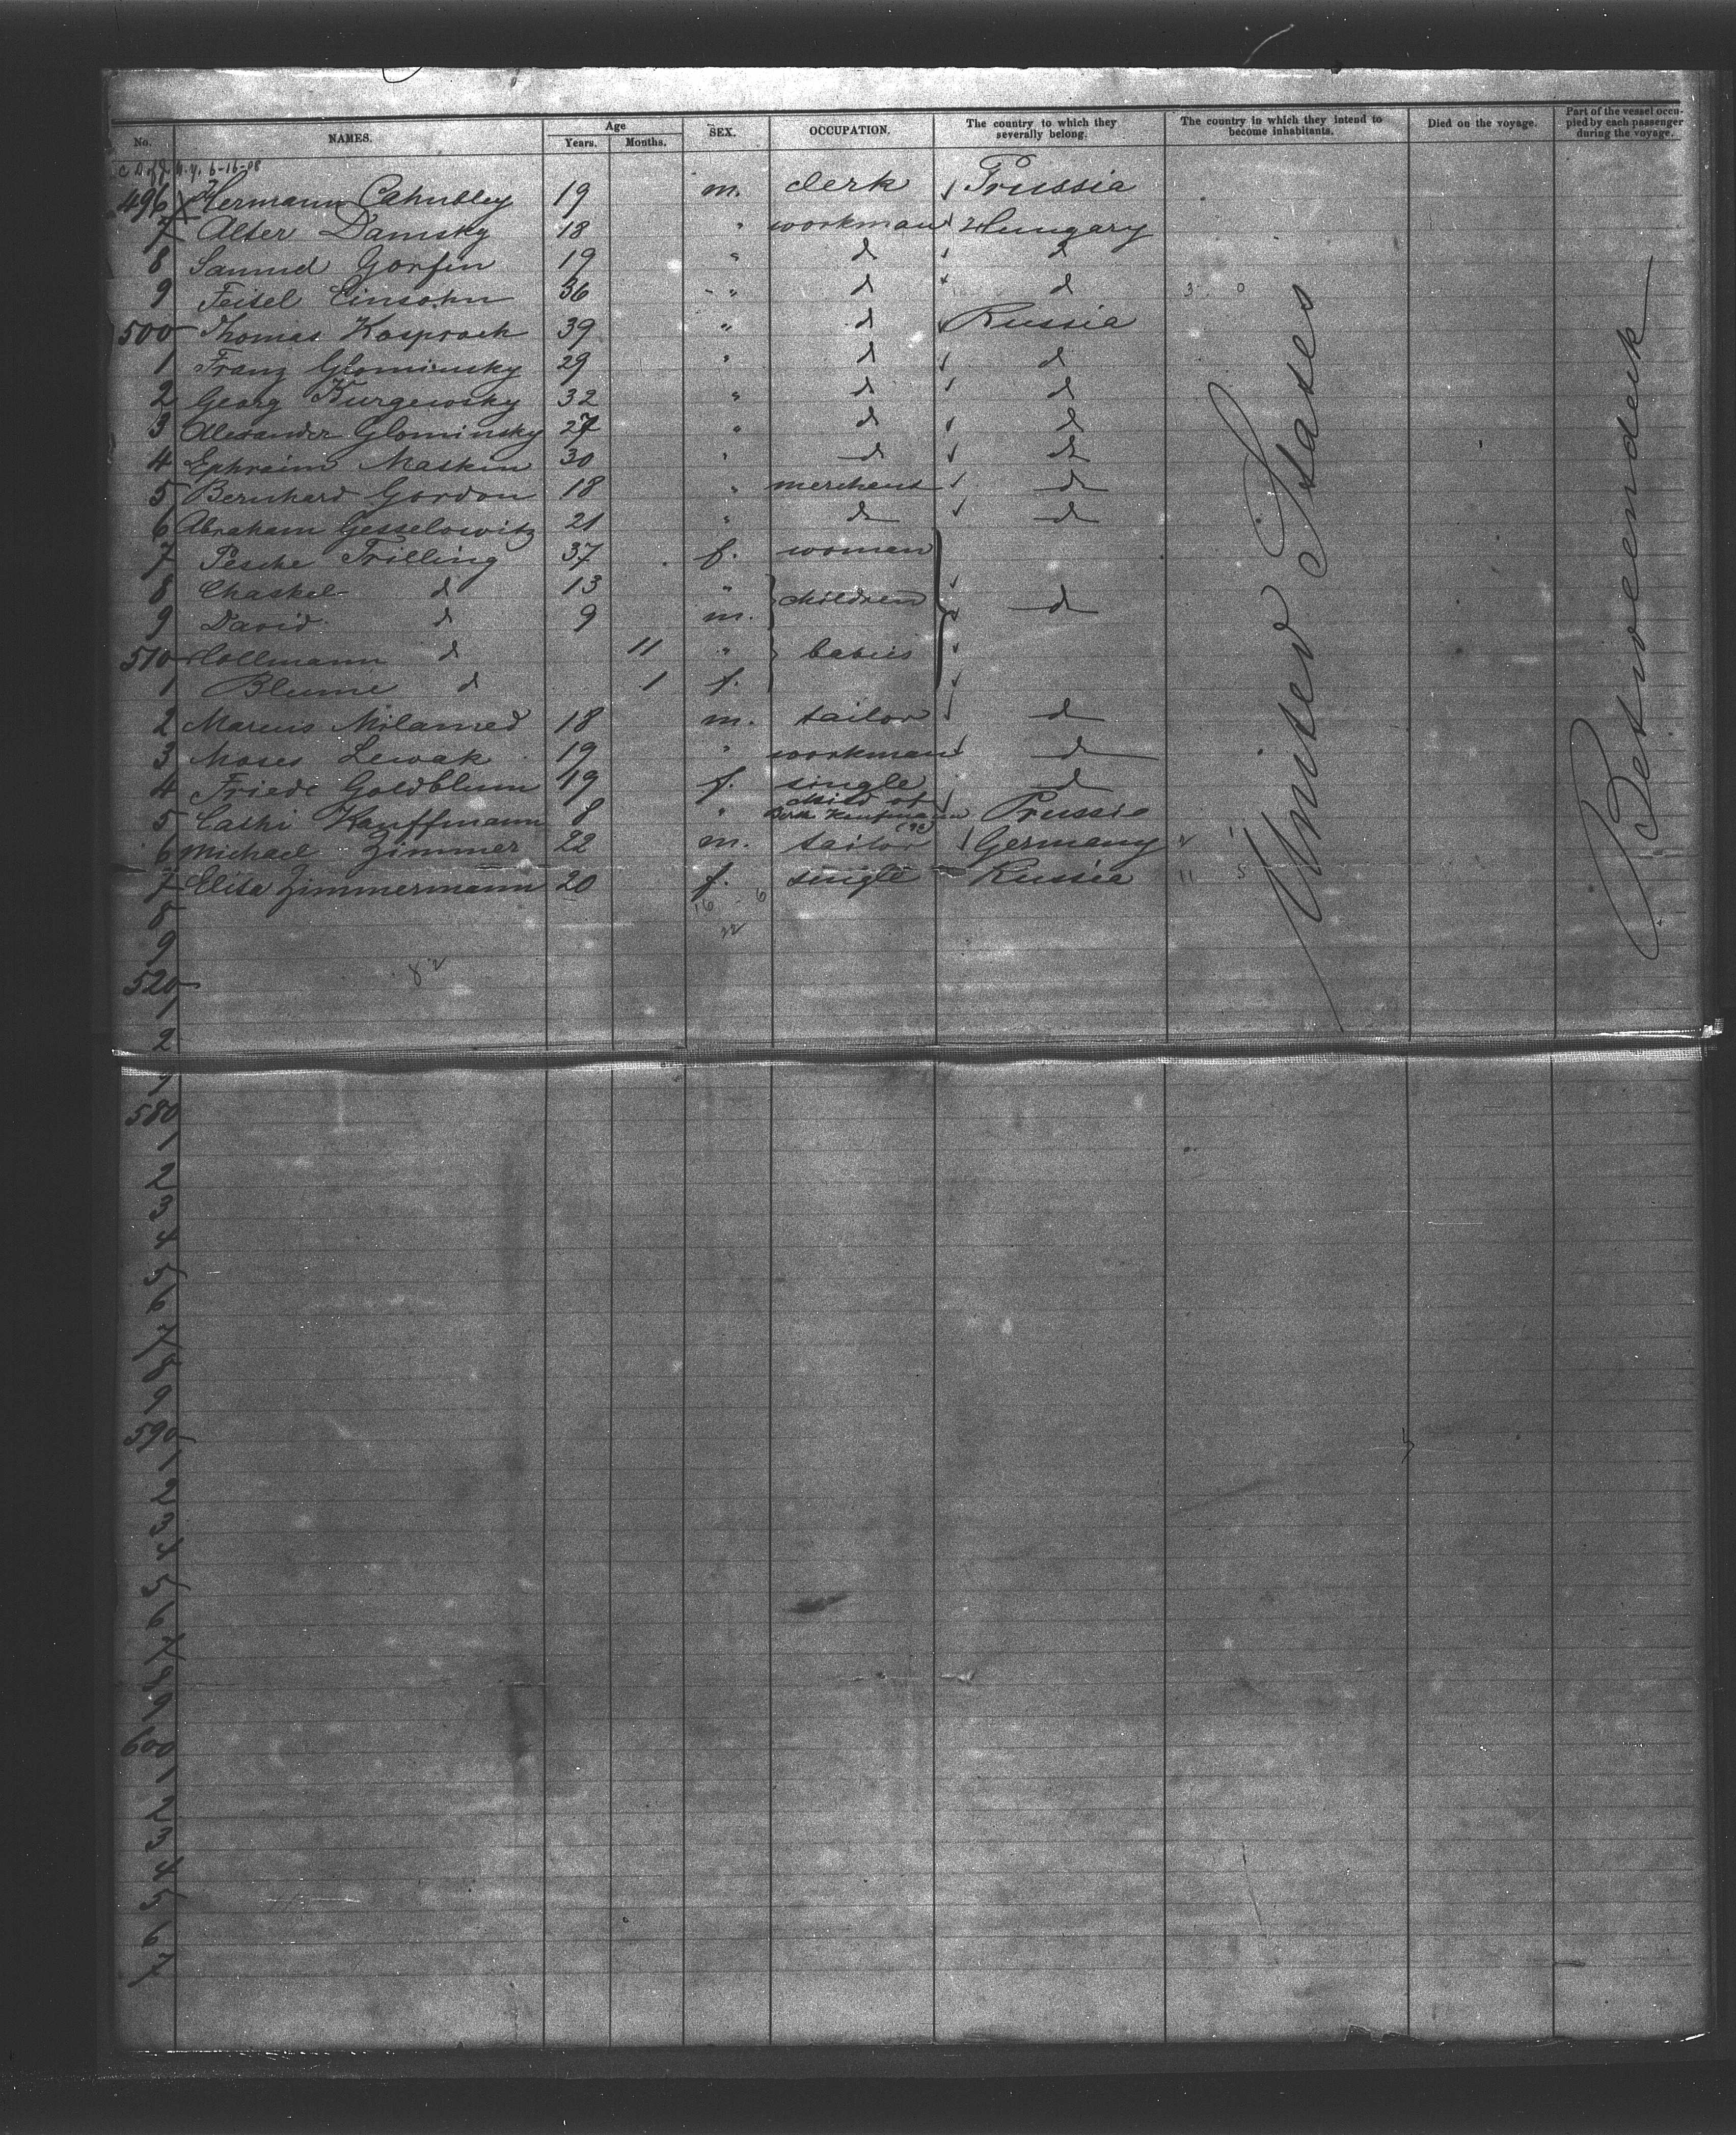 No. NAMES. Age Years. Months. SEX. OCCUPATION. The country to which they severally belong. The country in which they intend to become inhabitants. Died on the voyage. Part of the vessel occupied by each passenger during the voyage.
6-16-08
496 X Hermann Cahnbley 19 m. clerk Prussia
7 Alter Damsky 18 " workman Hungary
8 Samuel Gorfin 19 " d d
9 Feitel Einsohn 36 " d d
500 Thomas Kasprock 39 " d Russia
1 Franz Glominsky 29 " d d
2 Georg Kurgewsky 32 " d d
3 Alexander Glominsky 27 " d d
4 Ephraim Maskin 30 " d d
5 Bernhard Gordon 18 " merchant d
6 Abraham Gesselowitz 21 " d d
7 Pesche Trilling 37 f. woman
8 Chaskel d 13 " children
9 David d 9 m. d
510 Kollmann d 11 " babies
1 Blume d 1 f.
2 Marcus Milamed 18 m. tailor d
3 Moses Lewak 19 " workman d
4 Friede Goldblum 19 f. single d
5 Cathi Kauffmann 8 " child of Prussia
6 Michael Zimmer 22 m. tailor Germany
7 Elisa Zimmermann 20 f. single Russia
8
9
520
1
2
United States
Betweendeck
580
1
2
3
4
5
6
7
8
9
590
1
2
3
4
5
6
7
8
9
600
1
2
3
4
5
6
7